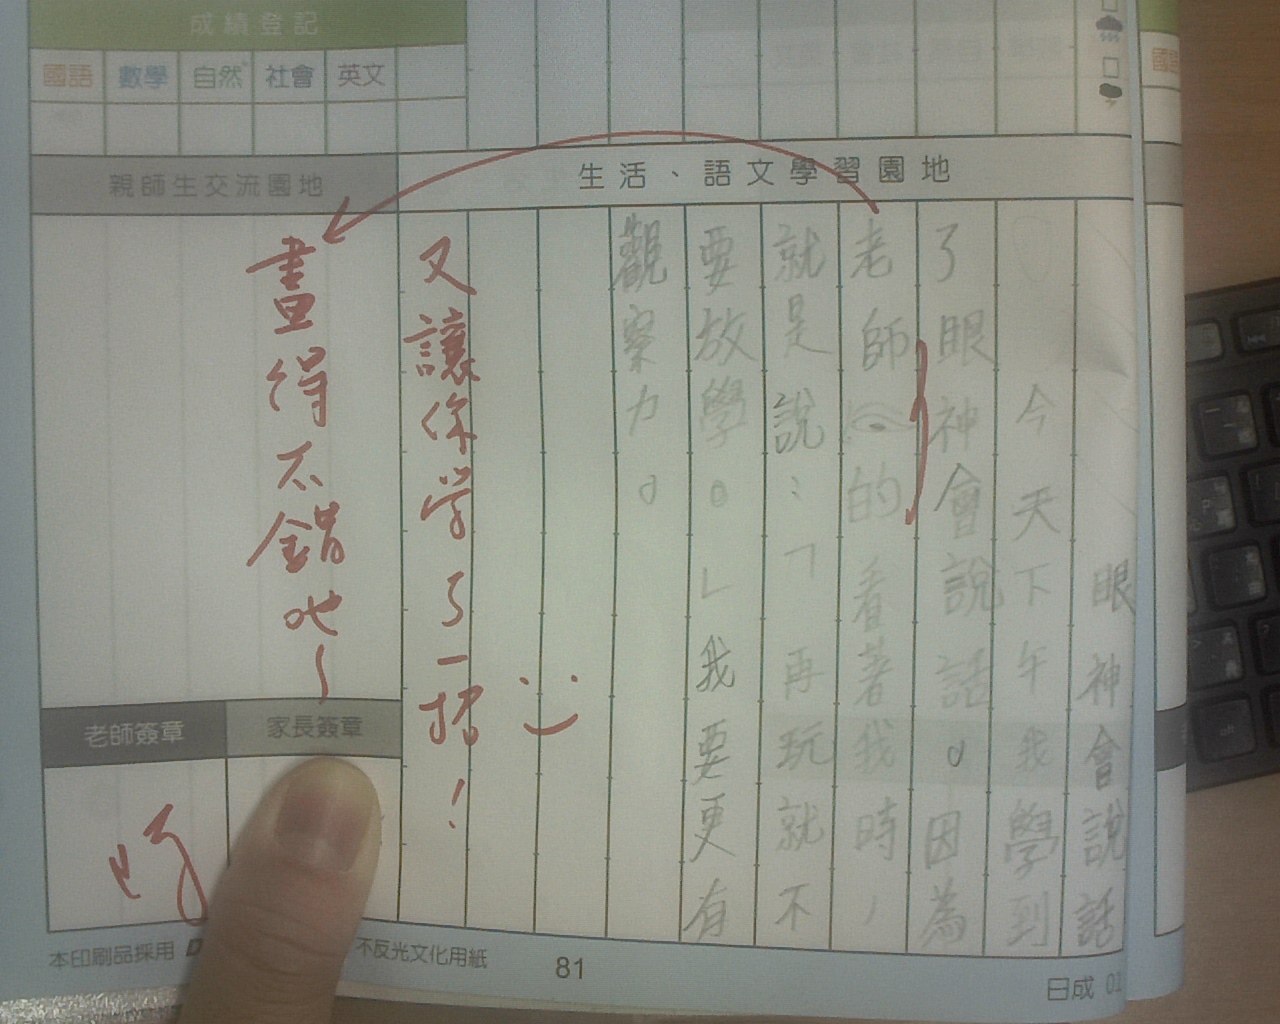 成績登記
國語 數學 自然 社會 英文
生活、語文學習園地
眼神會說話
今天下午我學到
了眼神會說話。因為
老師的看著我時,
就是說:「再玩就不
要放學。」我要更有
觀察力。
又讓你學了一招!
親師生交流園地
畫得不錯吔~
老師簽章
家長簽章
本印刷品採用
不反光文化用紙
81
日成 01